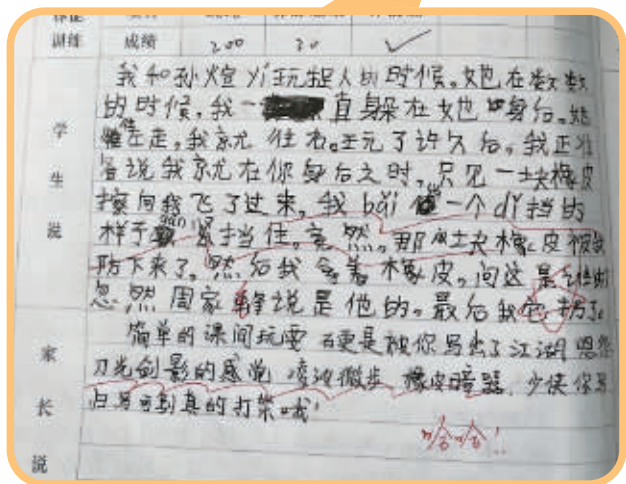 训练 成绩 200 20 ✓
学生说
我和孙煊yí玩捉人的时候。她在数数
的时候,我一直躲在她身后。她
往左走,我就往右。玩了许久后。我正准
备说我就在你身后之时,只见一块橡皮
擦向我飞了过来,我bǎi一个dǐ挡的
样子紧挡住。竟然,那块橡皮被我
挡下来了。然后我拿着橡皮,问这是
忽然周家说是他的。最后我
家长说
简单的课间玩耍 更是被你写出了江湖
刀光剑影的感觉 凌波微步 橡皮暗器
真的打架呢!
哈哈!!